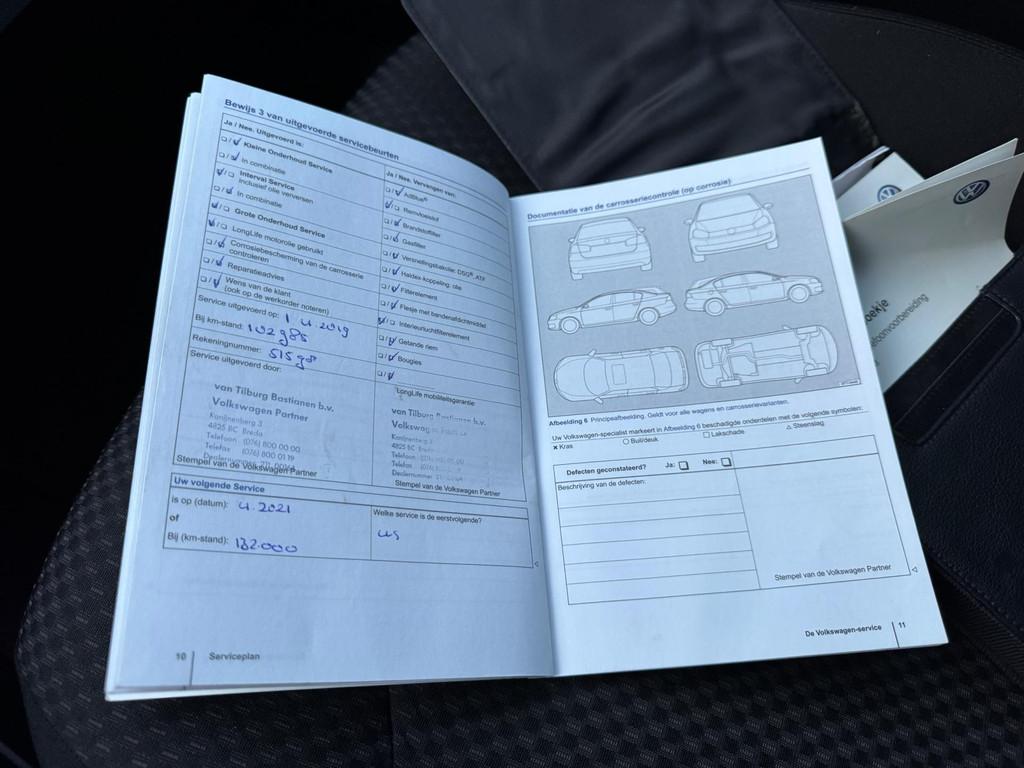 Bewijs 3 van uitgevoerde servicebeurten
Ja / Nee. Uitgevoerd is:
Kleine Onderhoud Service
In combinatie
Interval Service
Inclusief olie verversen
In combinatie
Grote Onderhoud Service
LongLife motorolie gebruikt
Corrosiebescherming van de carrosserie
controleren
Reparatieadvies
Wens van de klant
(ook op de werkorder noteren)
Service uitgevoerd op: 1 4.2019
Bij km-stand: 102985
Rekeningnummer:
Service uitgevoerd door:
van Tilburg Bastianen b.v.
Volkswagen Partner
Konijnenberg 3
4825 BC Breda
Telefoon (076) 800 00 00
Telefax (076) 800 01 19
Dealernummer
Stempel van de Volkswagen Partner
Ja / Nee. Vervangen van:
AdBlue®
Remvloeistof
Brandstoffilter
Gasfilter
Versnellingsbakolie: DSG®, ATF
Haldex-koppeling: olie
Filterelement
Flesje met bandenafdichtmiddel
Interieurluchtfilterelement
Getande riem
Bougies
LongLife mobiliteitsgarantie
van Tilburg Bastianen b.v.
Konijnenberg 3
4825 BC Breda
Telefoon
Telefax
Dealernummer
Stempel van de Volkswagen Partner
Uw volgende Service
is op (datum): 4.2021
of
Bij (km-stand): 132.000
Welke service is de eerstvolgende?
10 Serviceplan
Documentatie van de carrosseriecontrole (op corrosie)
Afbeelding 6 Principeafbeelding. Geldt voor alle wagens en carrosserievarianten.
Uw Volkswagen-specialist markeert in Afbeelding 6 beschadigde onderdelen met de volgende symbolen:
× Kras ○ Buil/deuk □ Lakschade △ Steenslag
Defecten geconstateerd? Ja: Nee:
Beschrijving van de defecten:
Stempel van de Volkswagen Partner
De Volkswagen-service 11